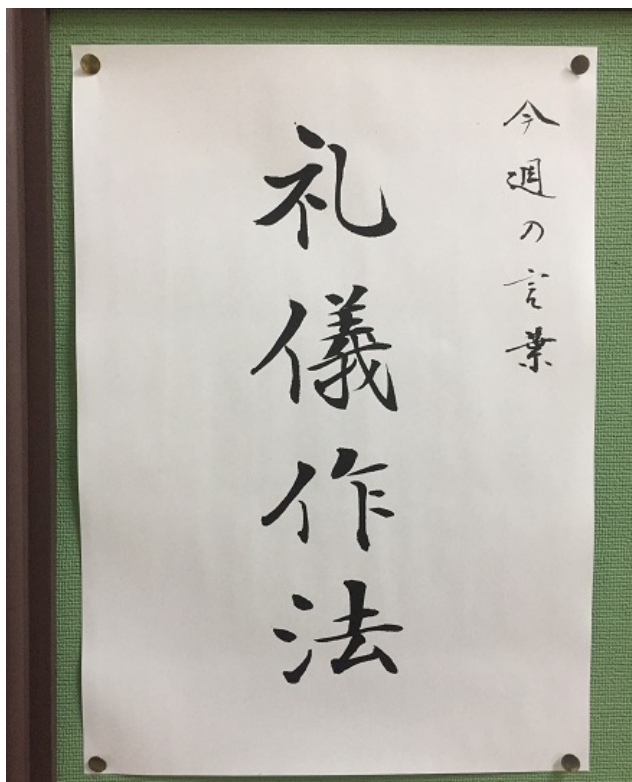 今週の言葉
礼儀作法